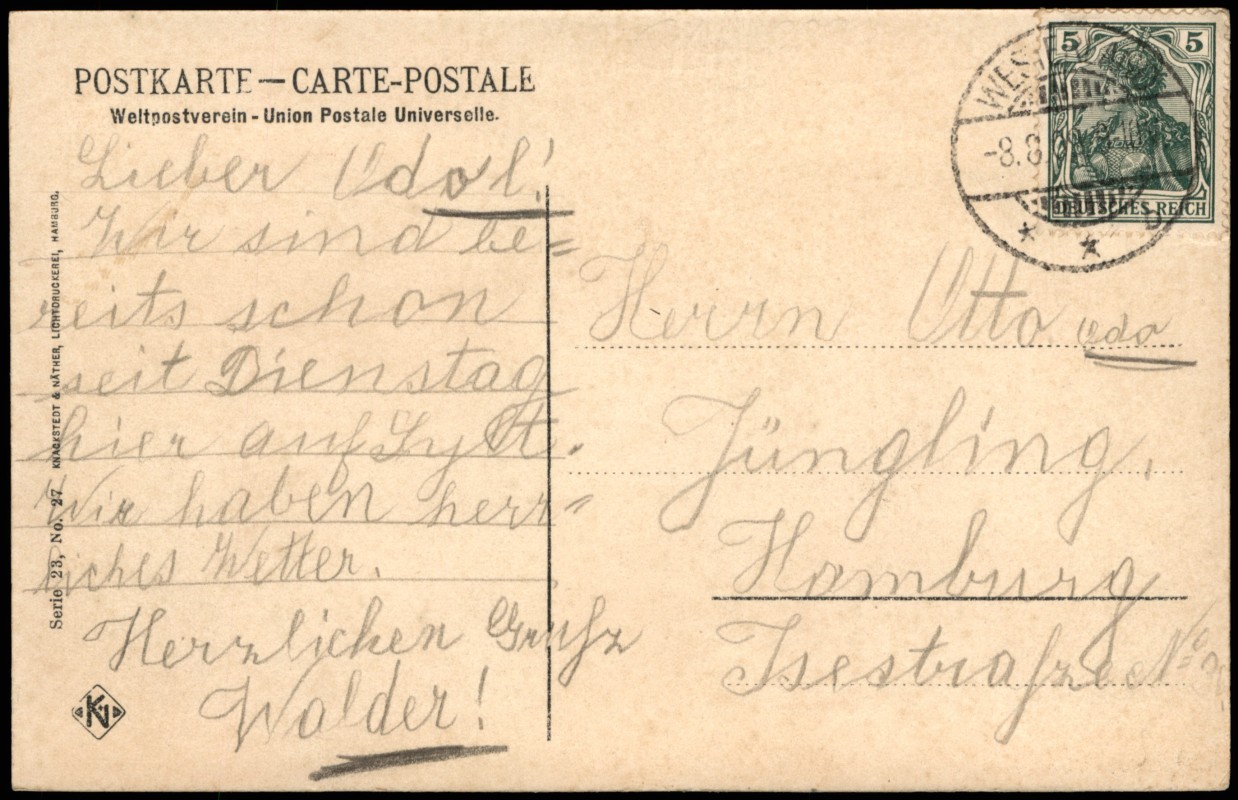 POSTKARTE — CARTE-POSTALE
Weltpostverein - Union Postale Universelle.
Lieber Udol!
Wir sind be=
reits schon
seit Dienstag
hier auf Sylt.
Wir haben herr=
liches Wetter.
Herzlichen Grufz
Walder!
Serie 23, No. 27 KNACKSTEDT & NÄTHER, LICHTDRUCKEREI, HAMBURG.
KN
5 5
DEUTSCHES REICH
-8.8.
Herrn Otto Udo
Jüngling.
Hamburg
Isestrafze No